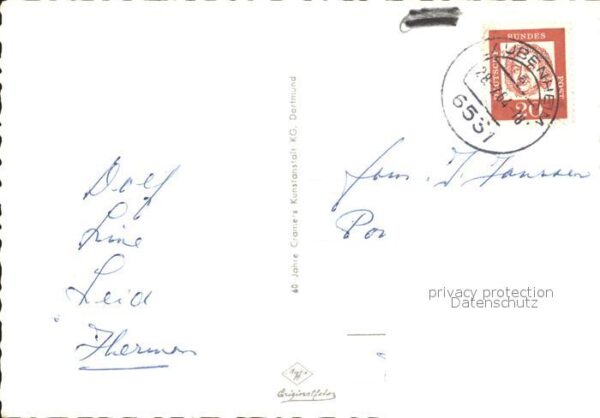 BUNDES
DEUTSCHE
POST
20
UBENHEIM
6531
Dolf
Line
Leid
Herman
60 Jahre Cramers Kunstanstalt KG, Dortmund
Fam. J. Janssen
Por
privacy protection
Datenschutz
Originalfoto